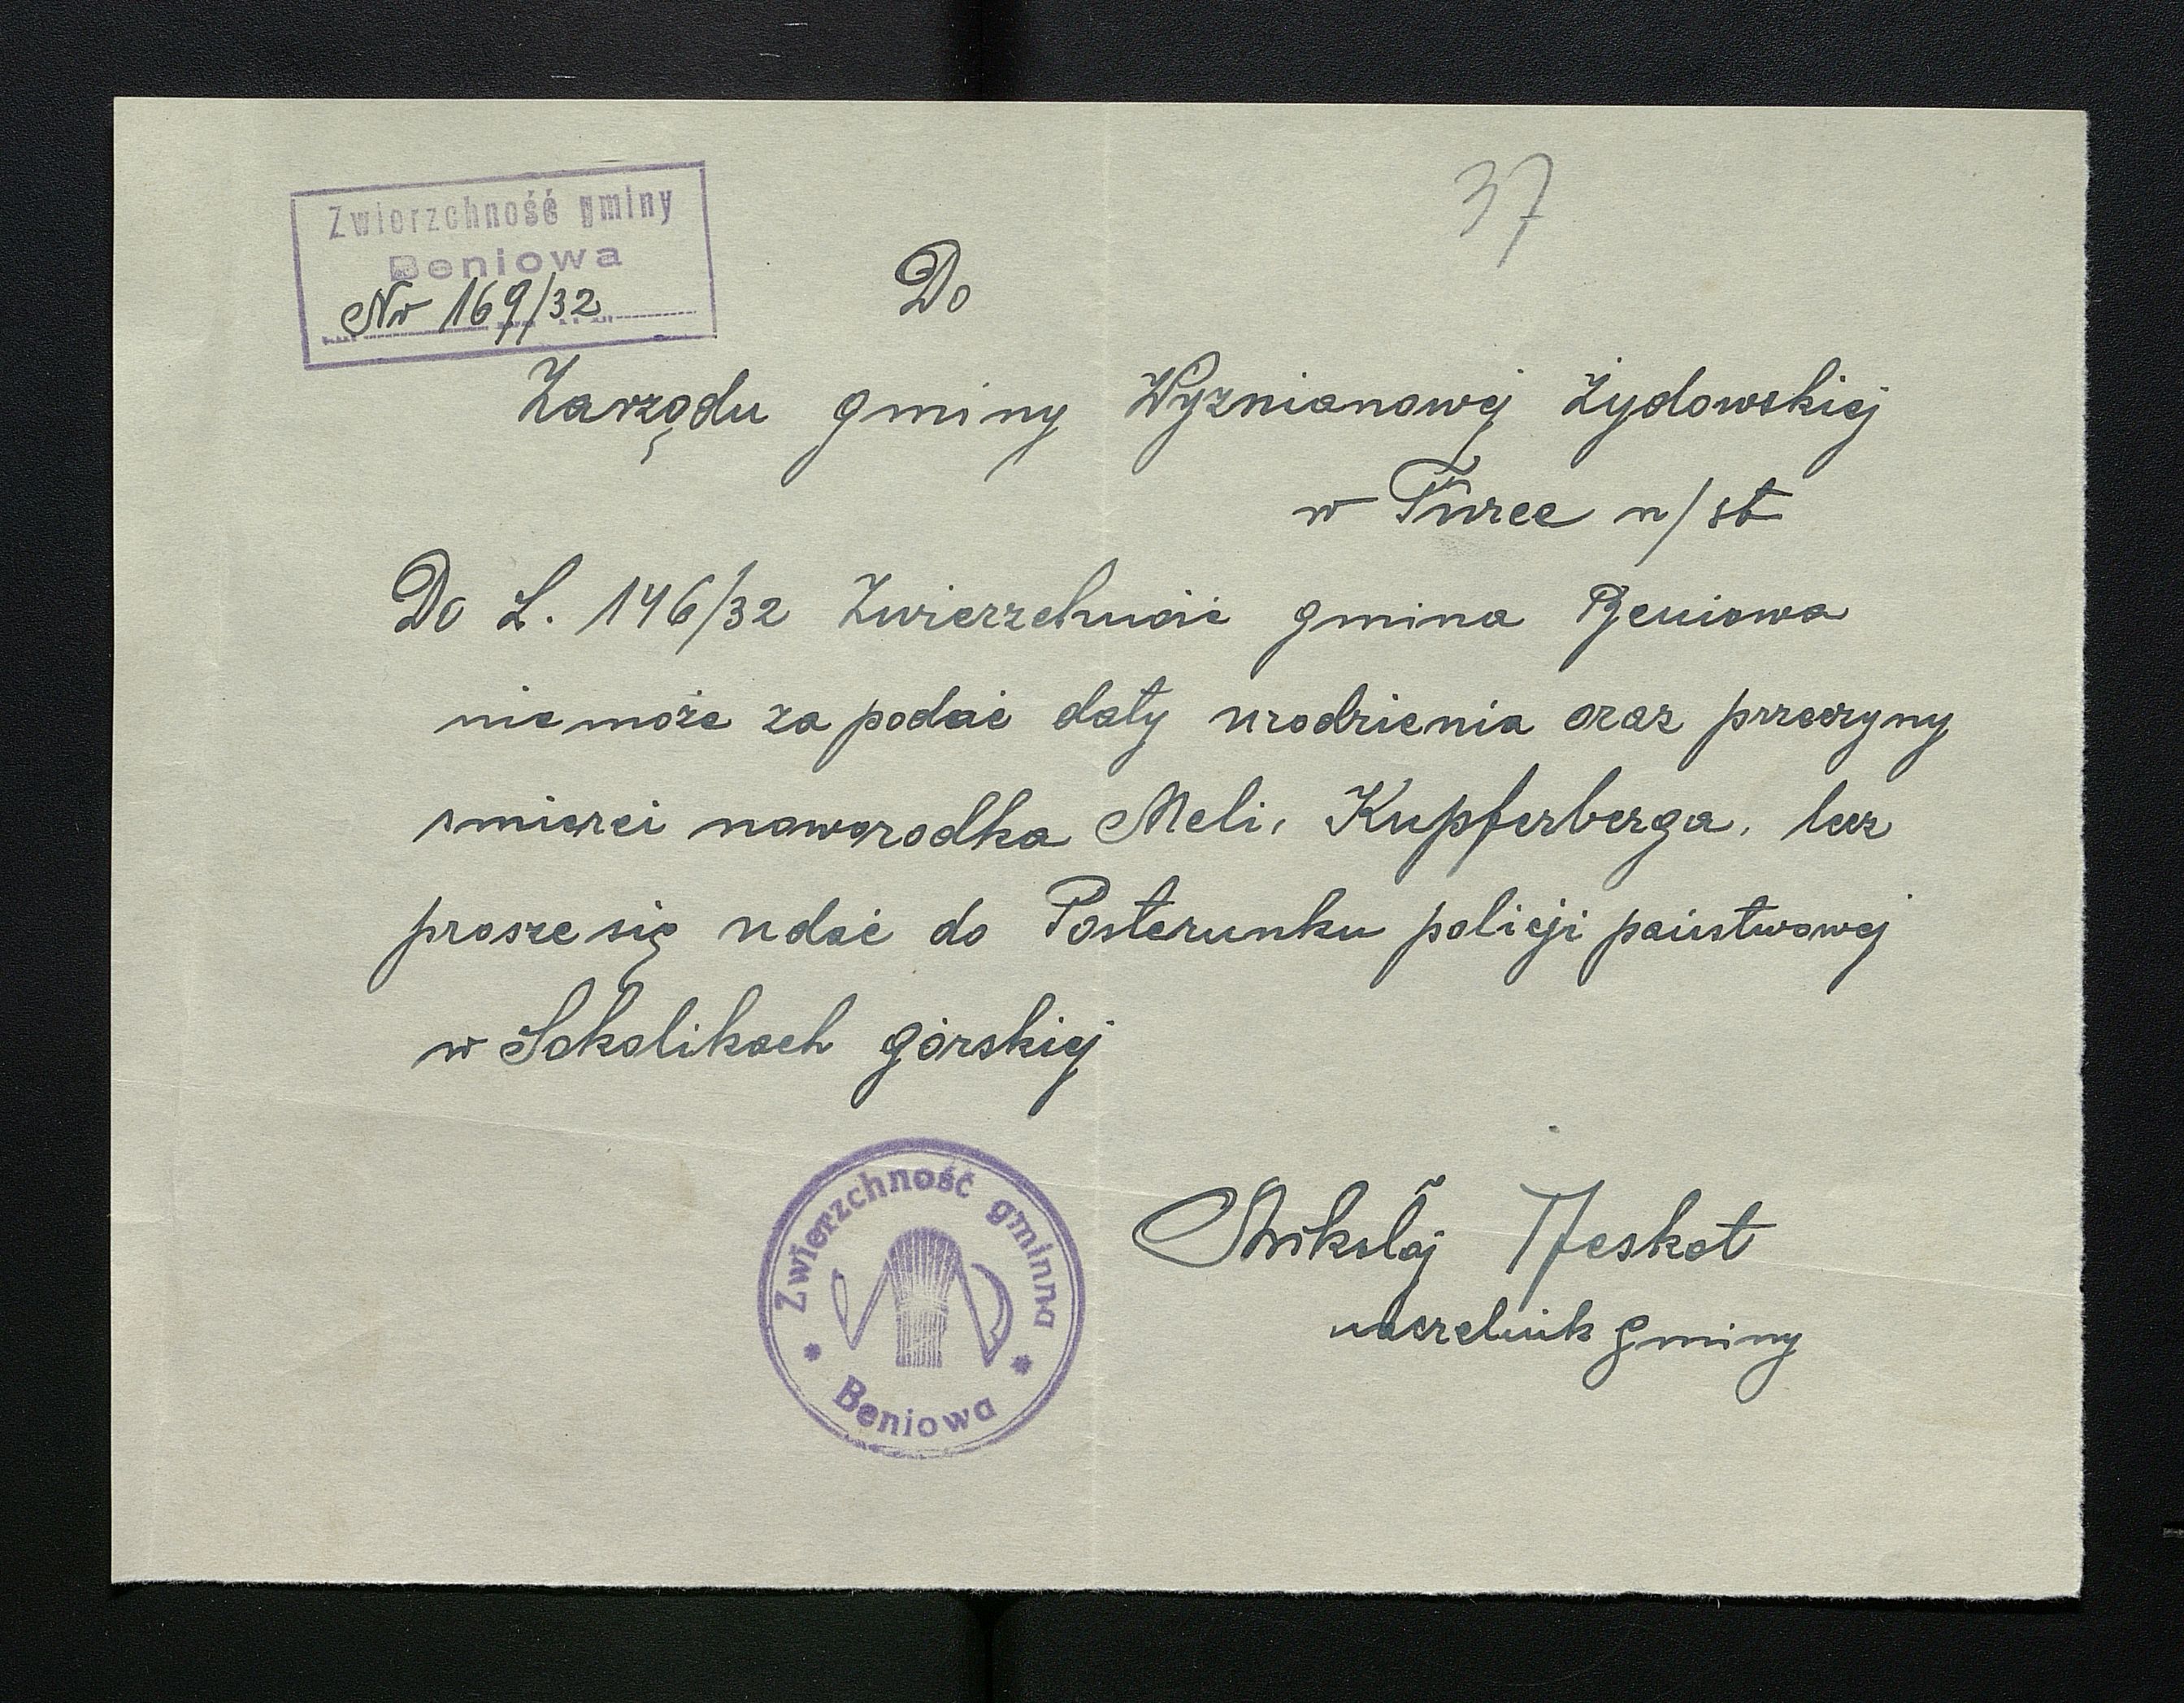 37
Zwierzchność gminy
Beniowa
Nr 169/32
Do
Zarządu gminy Wyznianowej Żydowskiej
w Turce n/st
Do L. 146/32 Zwierzchność gmina Beniowa
nie może za podać daty urodzienia oraz przeczyny
smierci noworodka Meli, Kupferberga, lecz
prosze się udać do Posterunku policji państwowej
w Sokolikach górskiej
Zwierzchność gminna
* Beniowa *
Mikołaj Jeskot
naczelnik gminy